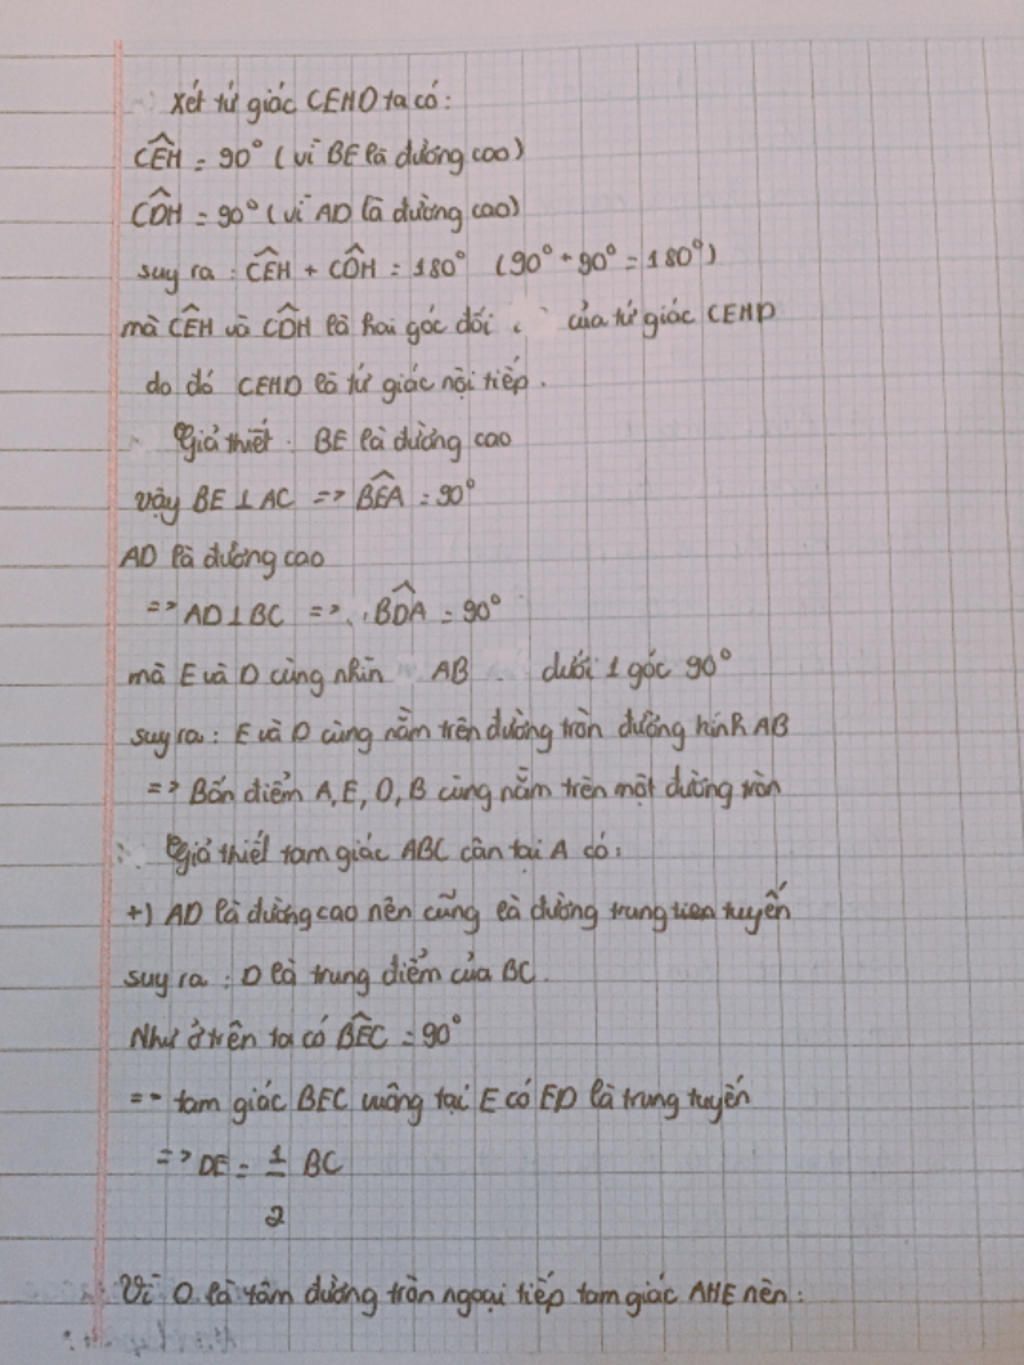 Xét tứ giác CEHD ta có:
CEH = 90° (vì BE là đường cao)
CDH = 90° (vì AD là đường cao)
suy ra : CEH + CDH = 180° (90° + 90° = 180°)
mà CEH và CDH là hai góc đối của tứ giác CEHD
do đó CEHD là tứ giác nội tiếp.
Giả thiết : BE là đường cao
vậy BE ⊥ AC => BEA = 90°
AD là đường cao
=> AD ⊥ BC => BDA = 90°
mà E và D cùng nhìn AB dưới 1 góc 90°
suy ra : E và D cùng nằm trên đường tròn đường kính AB
=> Bốn điểm A, E, D, B cùng nằm trên một đường tròn
Giả thiết tam giác ABC cân tại A có:
+) AD là đường cao nên cũng là đường trung tuyến
suy ra : D là trung điểm của BC.
Như ở trên ta có BEC = 90°
=> tam giác BEC vuông tại E có ED là trung tuyến
=> DE = 1/2 BC
Vì O là tâm đường tròn ngoại tiếp tam giác AHE nên: